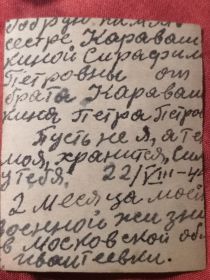 добрую память
сестре Караваш
киной Серафим
Петровны от
брата Караваш
кина Петра Петро
Пусть не я, а те
моя, хранится, Сим
у тебя. 22/VIII-4
2 месяца моей
военной жизни
в Московской об